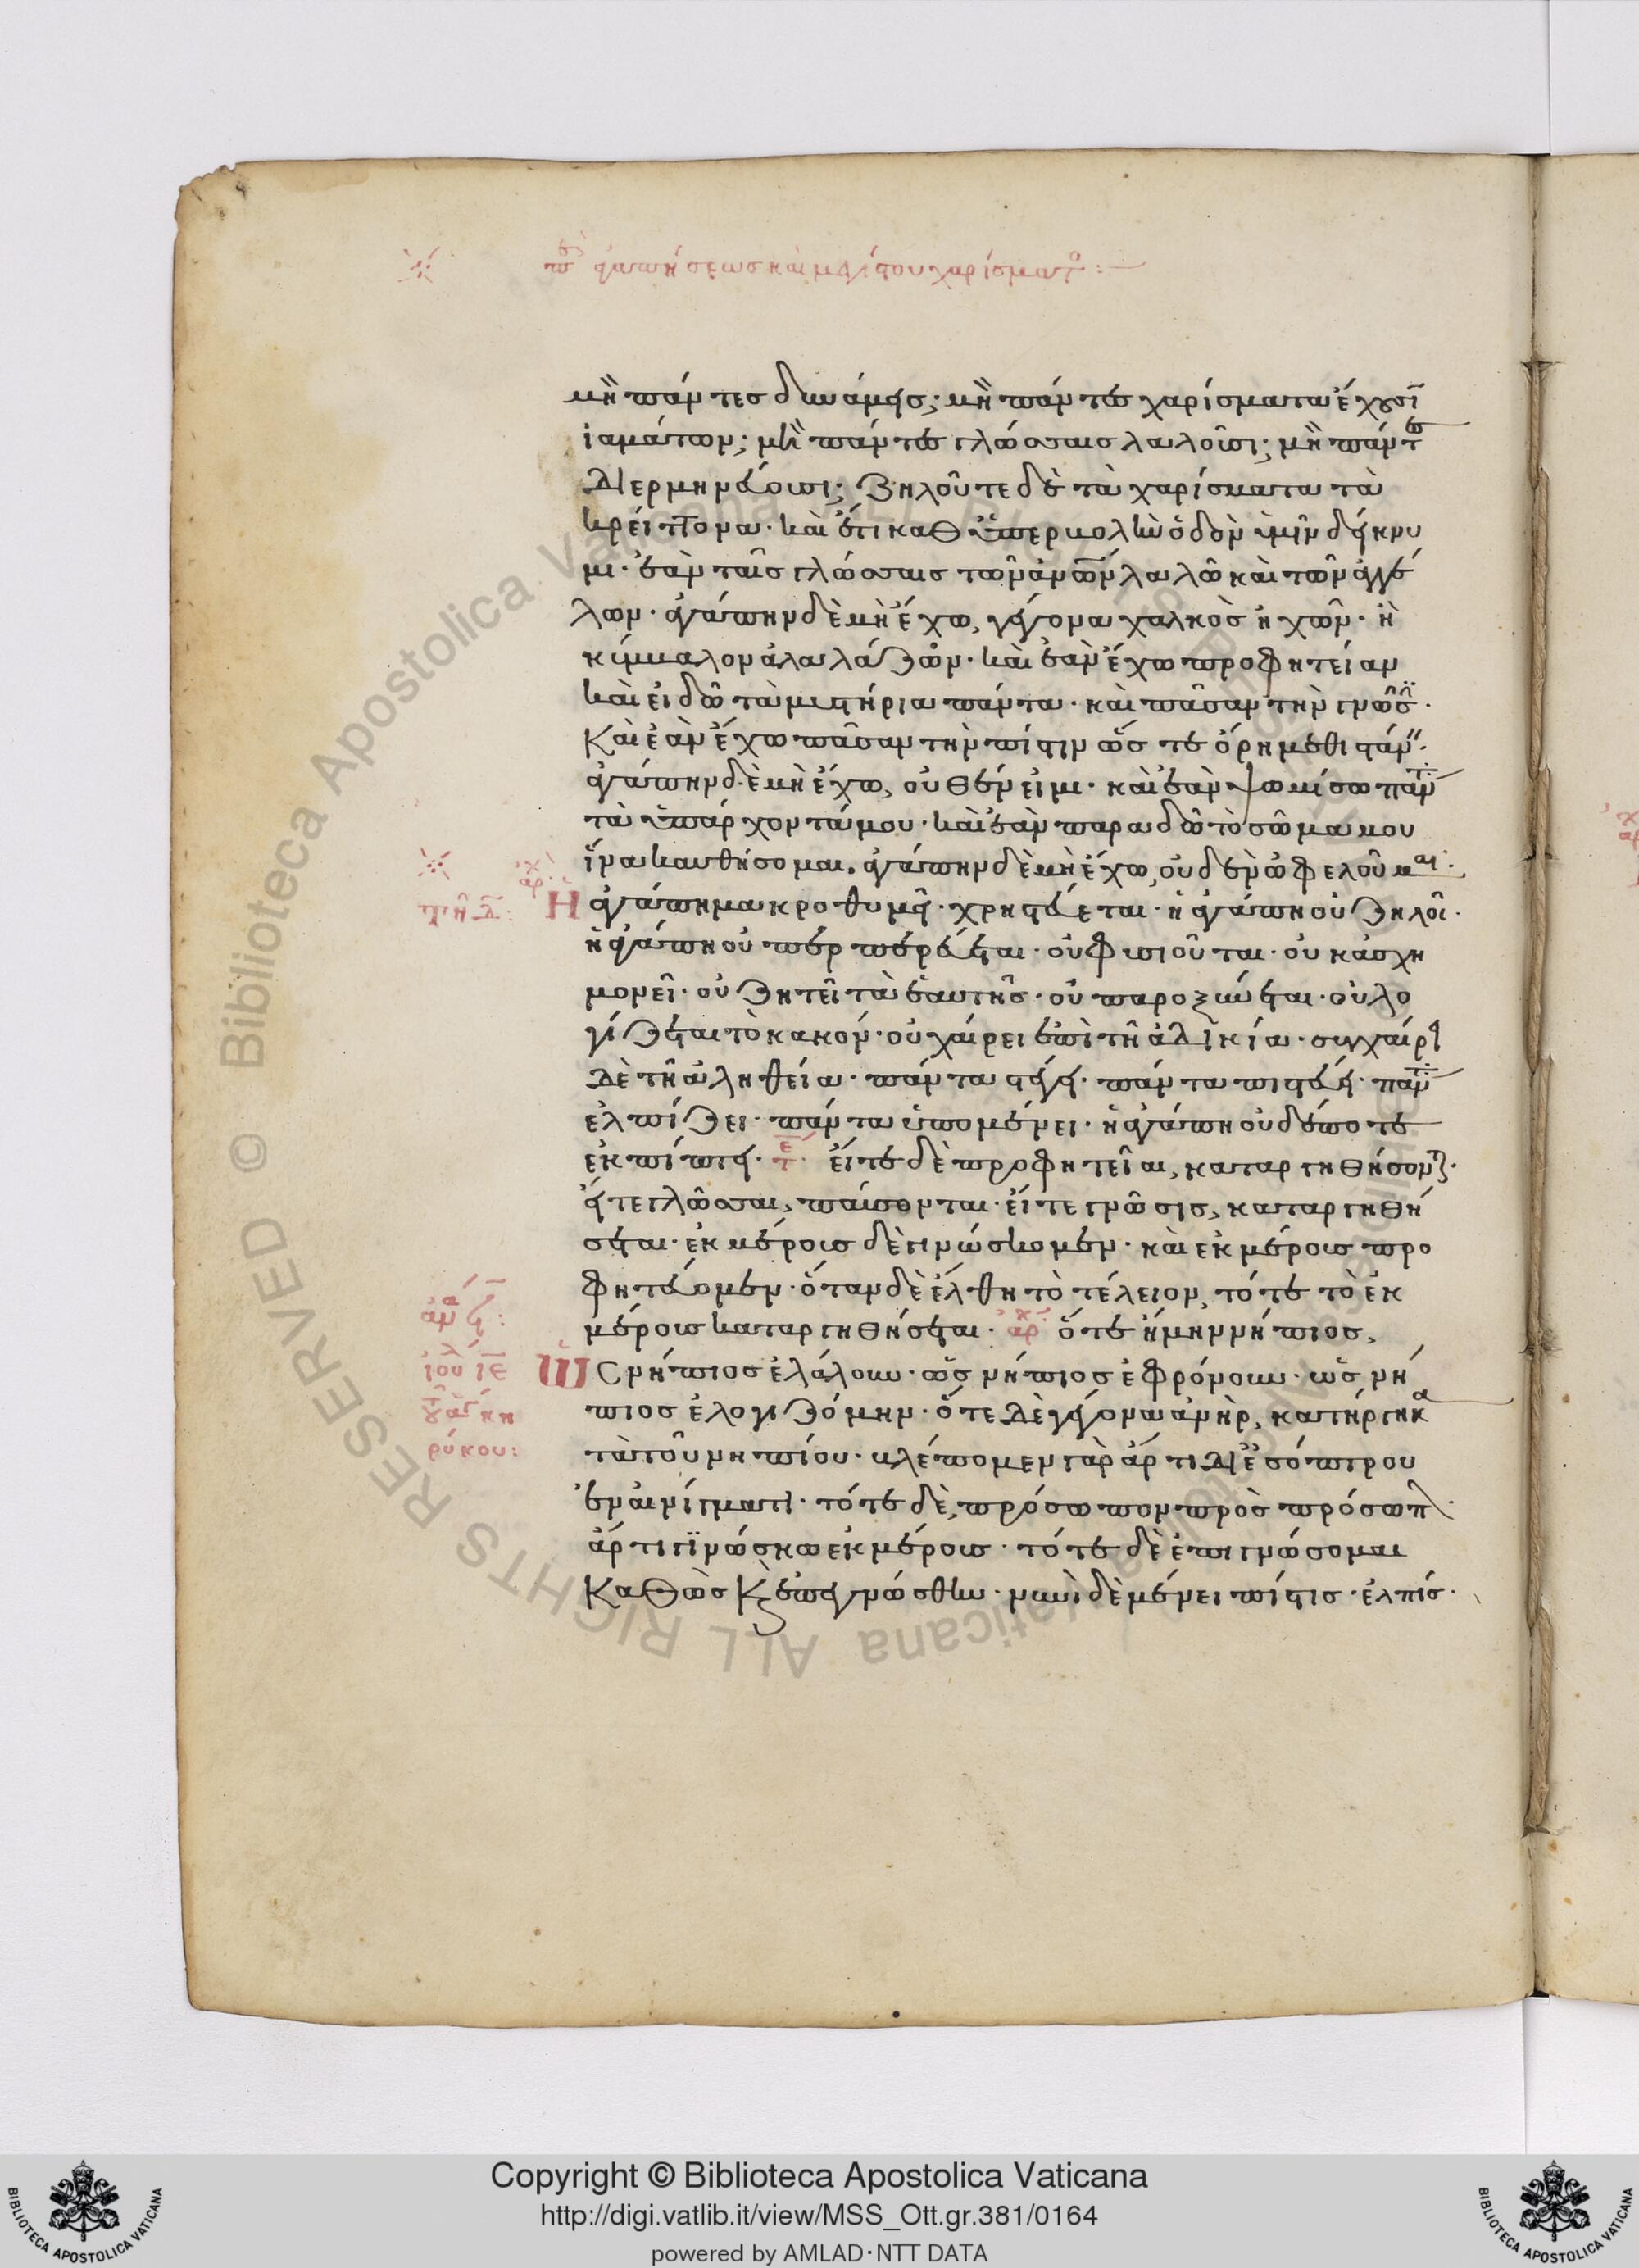 πε ἀγαπήσεως καὶ μεγίστου χαρίσματο :—
μὴ πάντες δυνάμεις; μὴ πάντες χαρίσματα ἔχουσι
ἰαμάτων; μὴ πάντες γλώσσαις λαλοῦσι; μὴ πάντες
διερμηνεύουσι; ζηλοῦτε δὲ τὰ χαρίσματα τὰ
κρείττονα· καὶ ἔτι καθ ὑπερβολὴν ὁδὸν ὑμῖν δείκνυ
μι· ἐὰν ταῖς γλώσσαις τῶν ἀνων λαλῶ καὶ τῶν ἀγγέ
λων· ἀγάπην δὲ μὴ ἔχω, γέγονα χαλκὸς ἠχῶν· ἢ
κύμβαλον ἀλαλάζων· καὶ ἐὰν ἔχω προφητείαν
καὶ εἰδῶ τὰ μυστήρια πάντα· καὶ πᾶσαν τὴν γνῶσ·
Καὶ ἐὰν ἔχω πᾶσαν τὴν πίστιν ὥς τε ὄρη μεθιστάν·
ἀγάπην δὲ μὴ ἔχω, οὐθέν εἰμι· καὶ ἐὰν ψωμίσω παν
τὰ ὑπάρχοντά μου· καὶ ἐὰν παραδῶ τὸ σῶμα μου
ἵνα καυθήσομαι. ἀγάπην δὲ μὴ ἔχω, οὐδὲν ὠφελοῦμαι·
Ἡ ἀγάπη μακροθυμεῖ· χρηστεύεται· ἡ ἀγάπη οὐ ζηλοῖ·
ἡ ἀγάπη οὐ περπερεύεται· οὐ φυσιοῦται· οὐκ ἀσχη
μονεῖ· οὐ ζητεῖ τὰ ἑαυτῆς· οὐ παροξύνεται· οὐ λο
γίζεται τὸ κακόν· οὐ χαίρει ἐπὶ τῇ ἀδικία· συγχαίρει
δὲ τῇ ἀληθεία· πάντα στέγει· πάντα πιστεύει· παν
ἐλπίζει· πάντα ὑπομένει· ἡ ἀγάπη οὐδέποτε
ἐκπίπτει· τε· εἴτε δὲ προφητεῖαι, καταργηθήσοντ·
εἴτε γλῶσσαι, παύσονται· εἴτε γνῶσις, καταργηθή
σεται· ἐκ μέρους δὲ γινώσκομεν· καὶ ἐκ μέρους προ
φητεύομεν· ὅταν δὲ ἔλθη τὸ τέλειον, τότε τὸ ἐκ
μέρους καταργηθήσεται· ἀρχ· ὅτε ἤμην νήπιος,
Ὡς νήπιος ἐλάλουν· ὡς νήπιος ἐφρόνουν· ὡς νή
πιος ἐλογιζόμην· ὅτε δὲ γέγονα ἀνὴρ, κατήργηκα
τὰ τοῦ νηπίου· βλέπομεν γὰρ ἄρτι δι ἐσόπτρου
ἐν αἰνίγματι· τότε δὲ, πρόσωπον πρὸς πρόσωπ·
ἄρτι γινώσκω ἐκ μέρους· τότε δὲ ἐπιγνώσομαι
Καθὼς κ ἐπεγνώσθην· νυνὶ δὲ μένει πίστις· ἐλπίς·
Copyright © Biblioteca Apostolica Vaticana
http://digi.vatlib.it/view/MSS_Ott.gr.381/0164
powered by AMLAD·NTT DATA